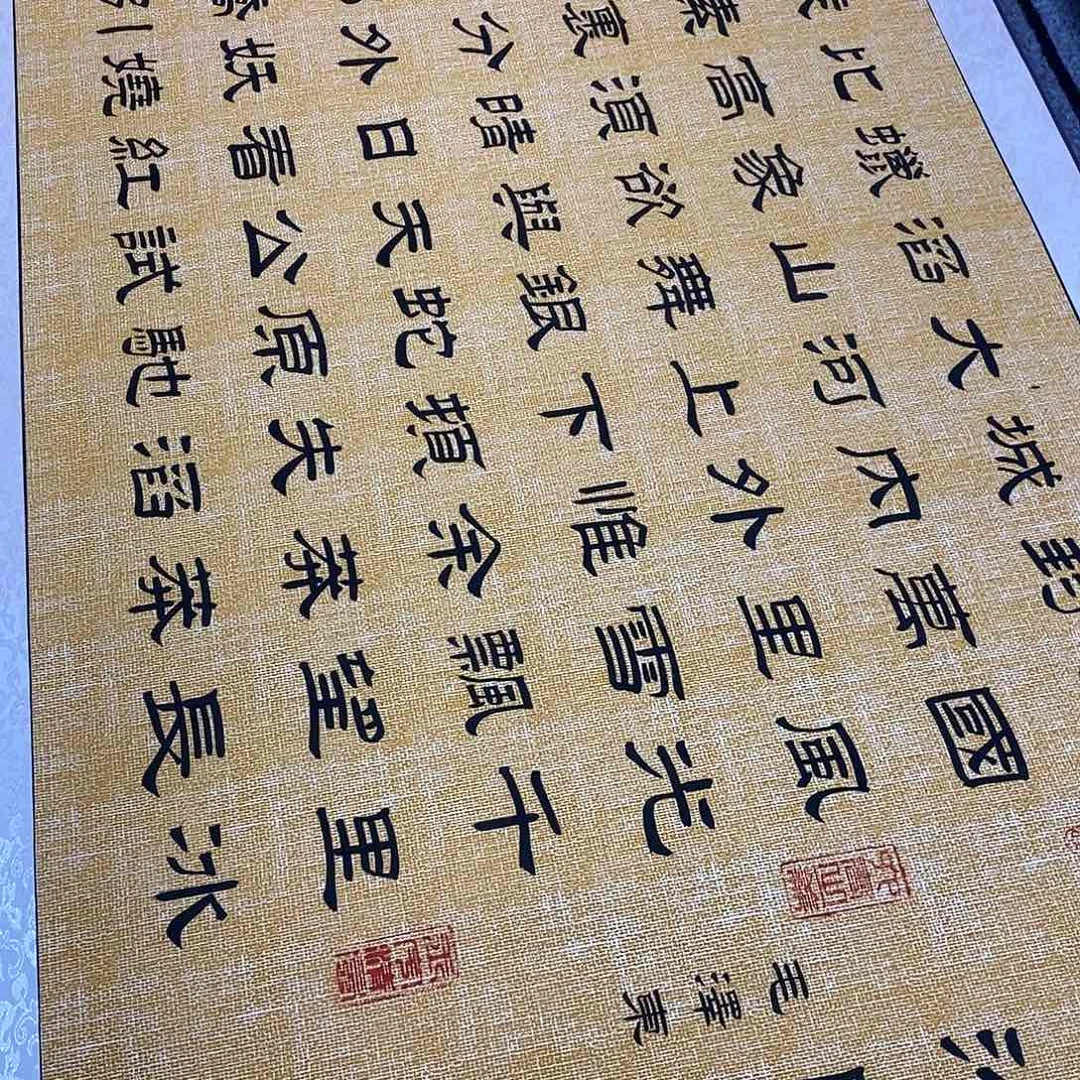 國風光千里冰
封萬里雪飄望長
城内外惟余莽莽
大河上下頓失滔
滔山舞銀蛇原馳
蠟象欲與天公試
比高須晴日看紅
素裹分外妖嬈
引
毛澤東